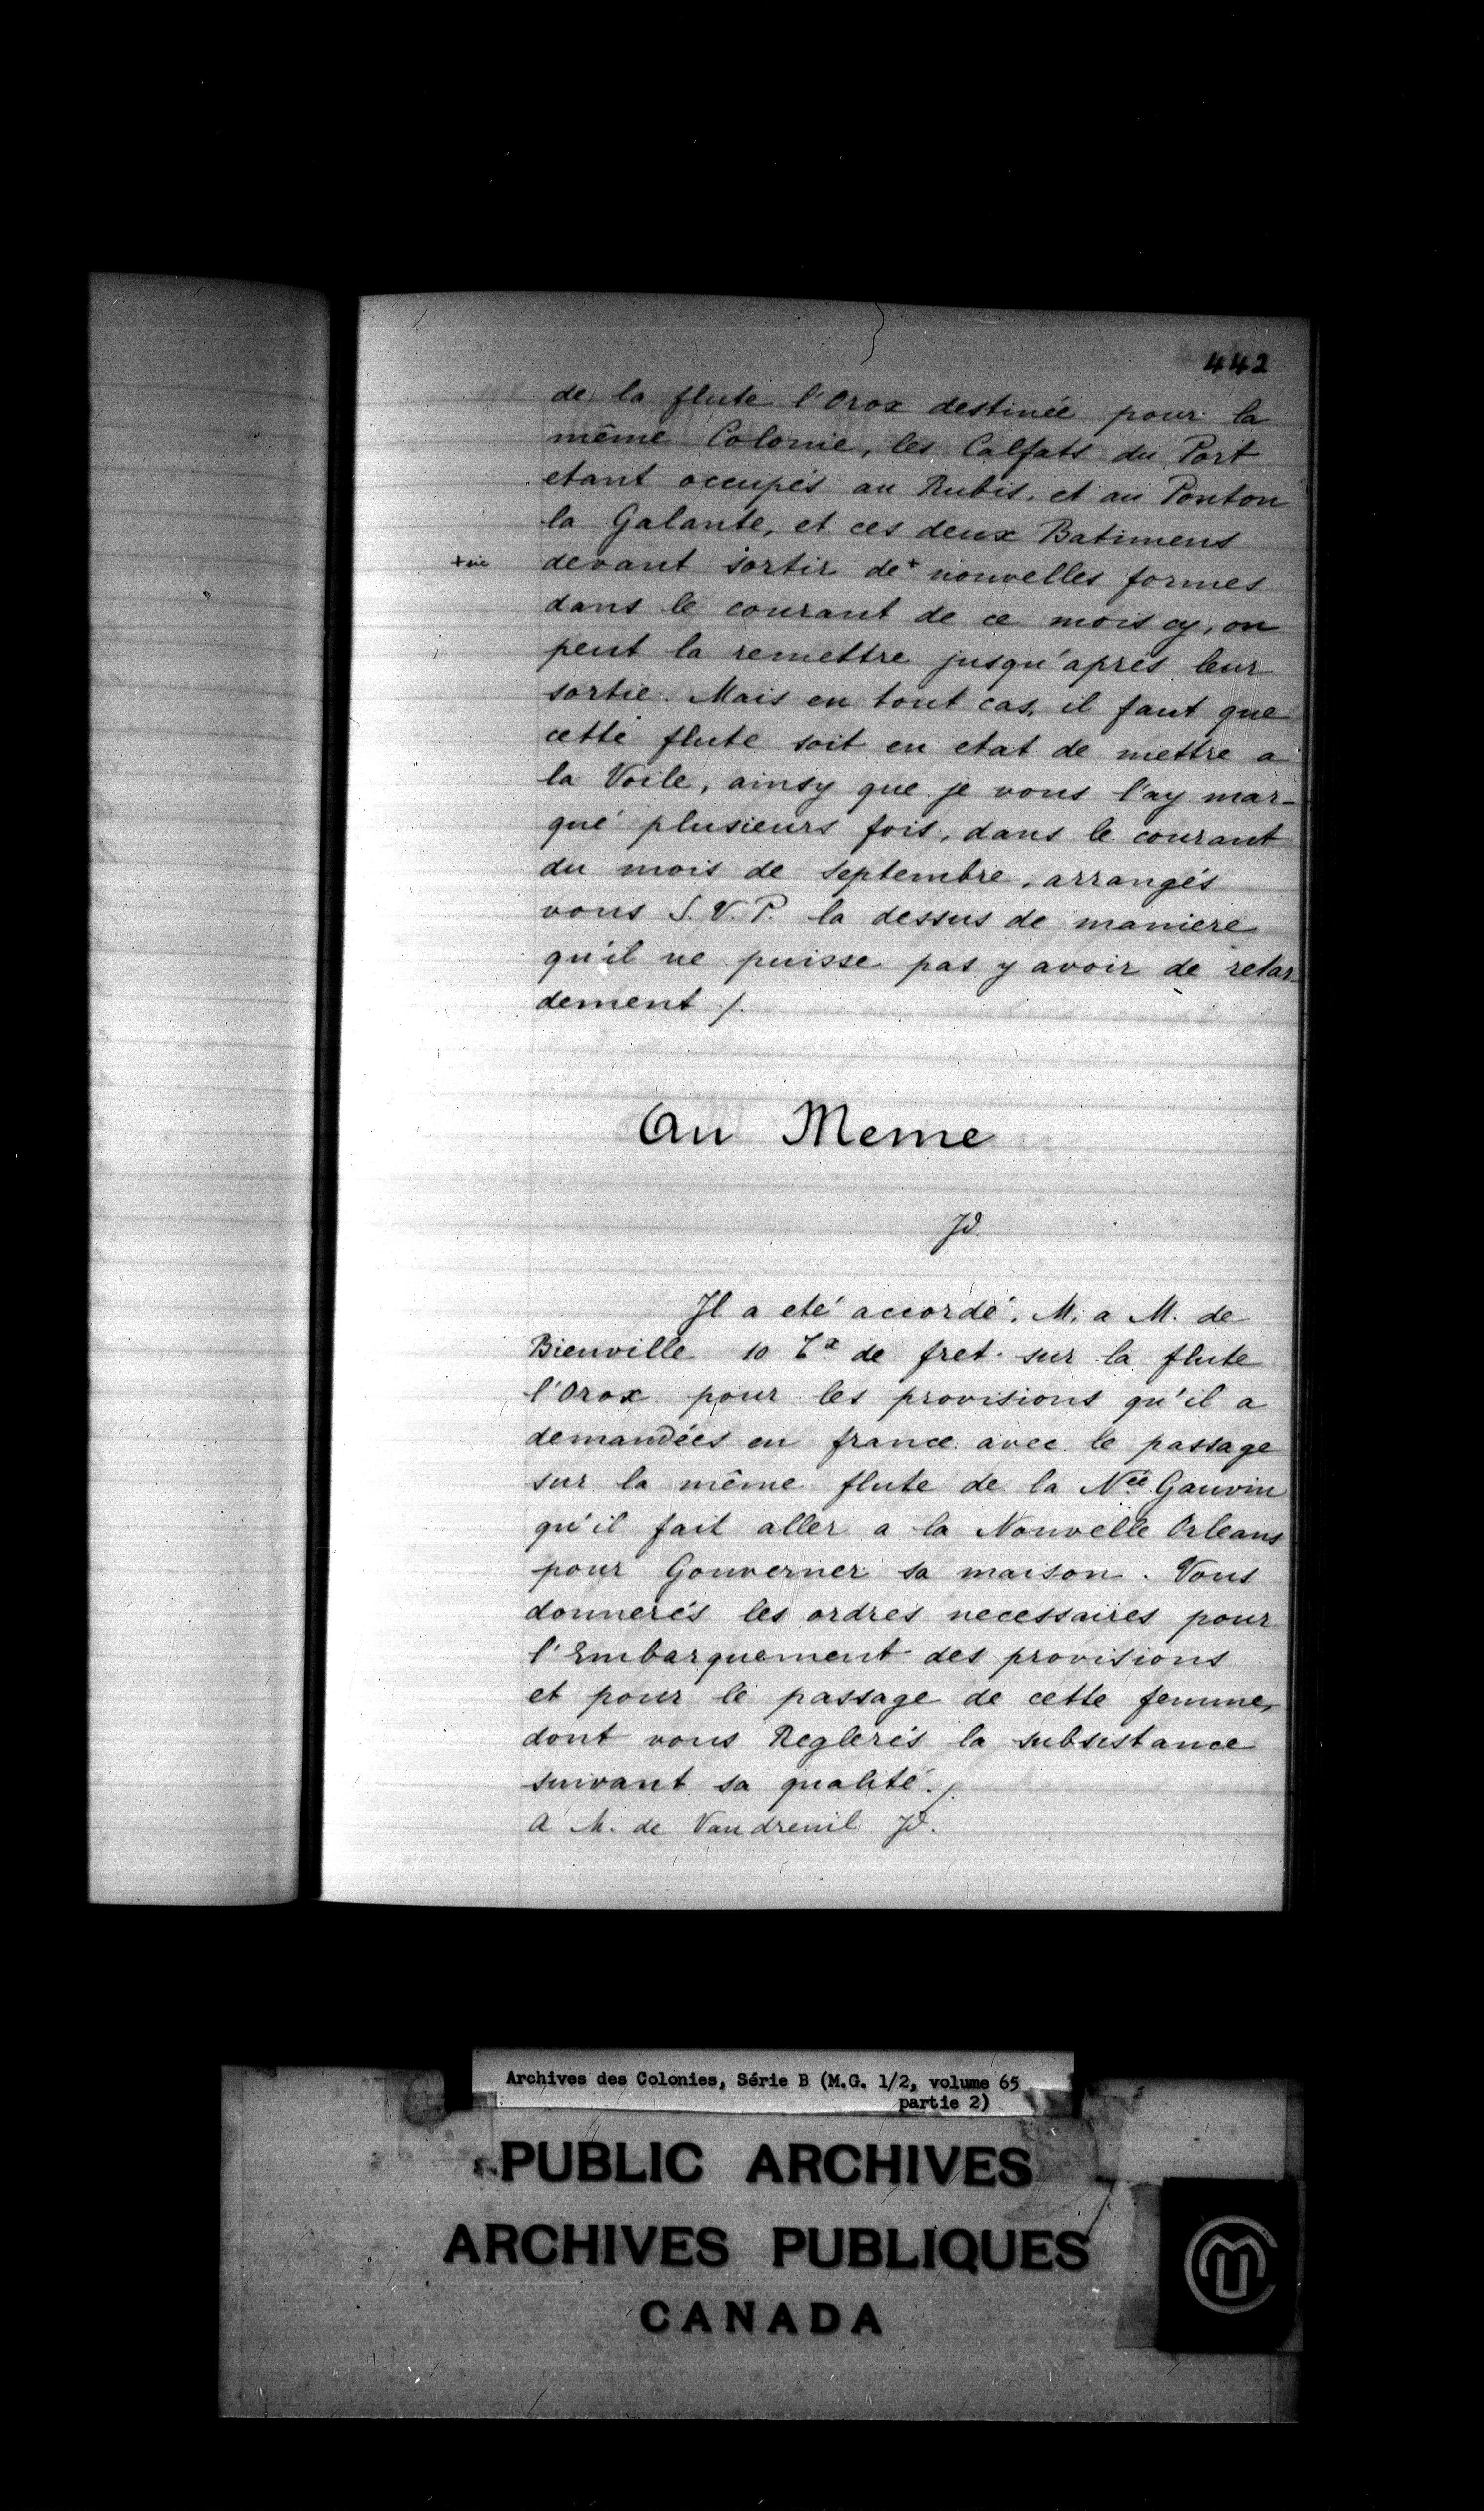 442
de la flute l'Orox destinée pour la
même Colonie, les Calfats du Port
etant occupés au Rubis, et au Ponton
la Galante, et ces deux Batimens
+sic devant sortir de+ nouvelles formes
dans le courant de ce mois cy, on
peut la remettre jusqu'aprés leur
sortie. Mais en tout cas, il faut que
cette flute soit en etat de mettre a
la Voile, ainsy que je vous l'ay mar-
qué plusieurs fois, dans le courant
du mois de septembre, arrangés
vous S.V.P. la dessus de maniere
qu'il ne puisse pas y avoir de retar-
dement /.
Au Meme
Jd.
Jl a eté accordé, M. a M. de
Bienville 10 Tx de fret sur la flute
l'Orox pour les provisions qu'il a
demandées en france avec le passage
sur la même flute de la Née Gauvin
qu'il fait aller a la Nouvelle Orleans
pour Gouverner sa maison. Vous
donnerés les ordres necessaires pour
l'Embarquement des provisions
et pour le passage de cette femme,
dont vous Reglerés la subsistance
suivant sa qualité./.
A M. de Vaudreuil Jd.
Archives des Colonies, Série B (M.G. 1/2, volume 65
partie 2)
PUBLIC ARCHIVES
ARCHIVES PUBLIQUES
CANADA